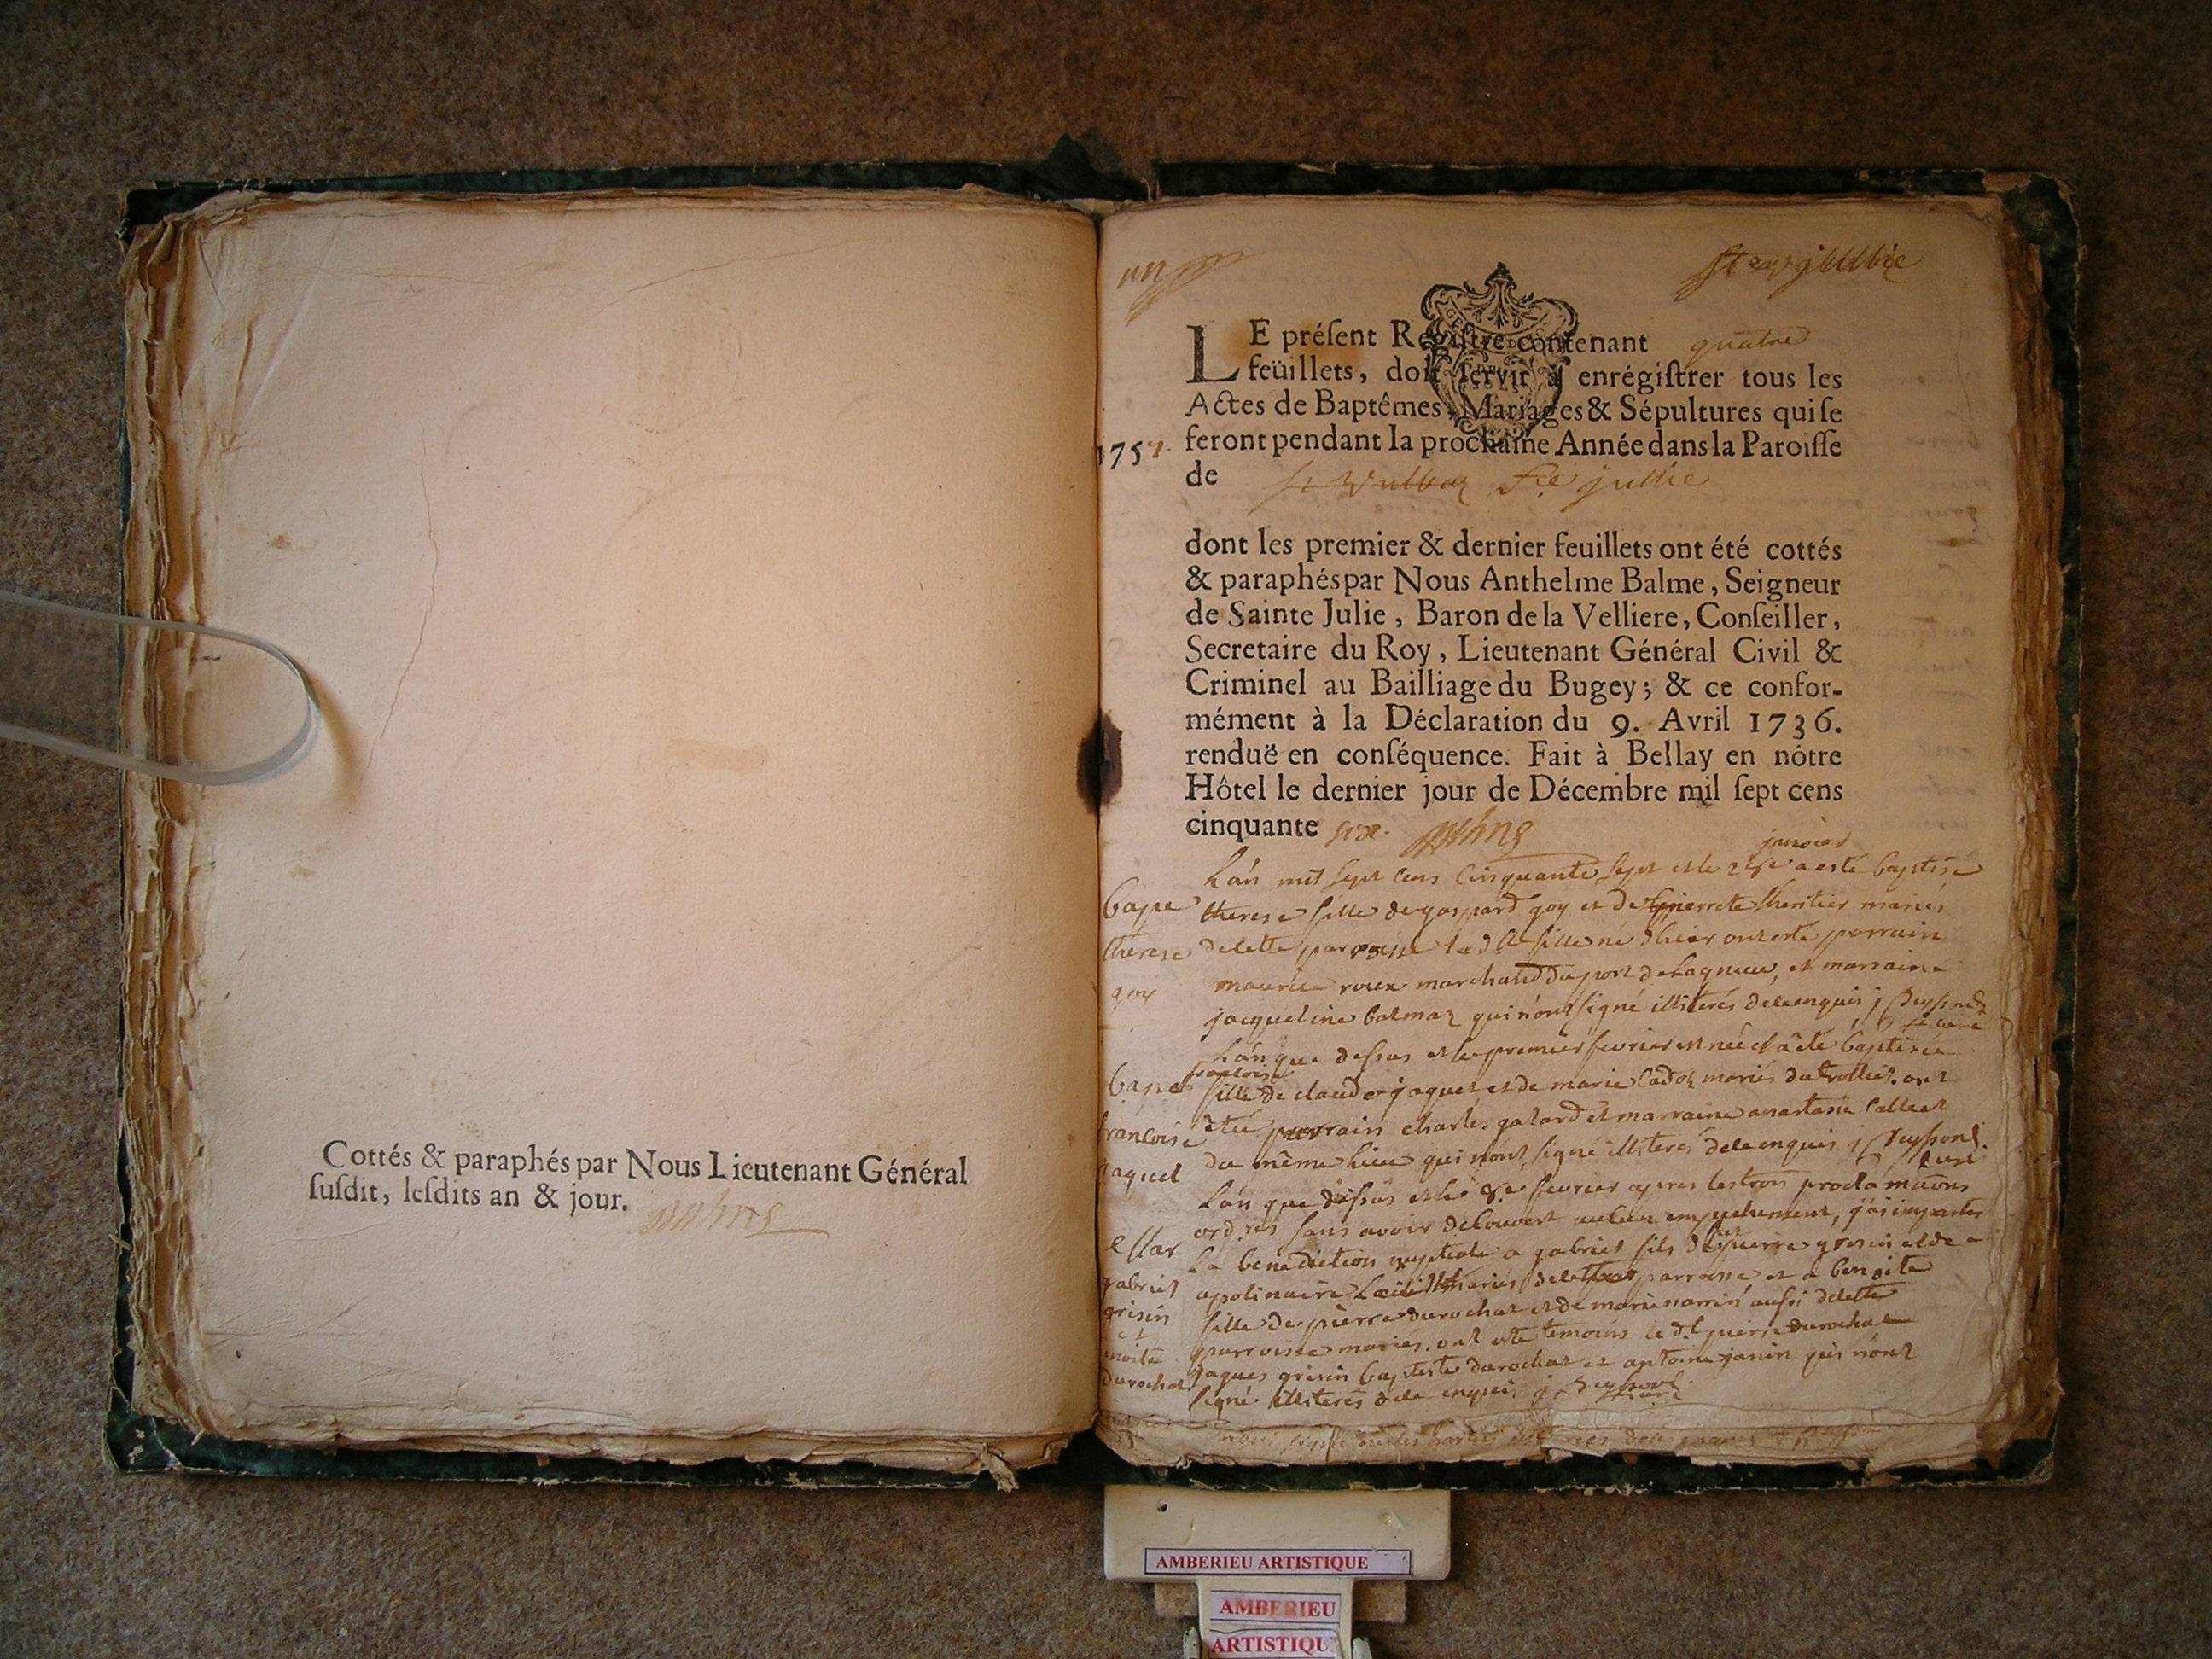 Cottés & paraphés par Nous Lieutenant Général
ſuſdit, leſdits an & jour.
Balme
un
Ste julie
LE préſent Regiſtre contenant quatre
feüillets, doit ſervir à enrégiſtrer tous les
Actes de Baptêmes, Mariages & Sépultures qui ſe
1757. feront pendant la prochaine Année dans la Paroiſſe
de St Vulbaz Ste julie
dont les premier & dernier feuillets ont été cottés
& paraphés par Nous Anthelme Balme, Seigneur
de Sainte Julie, Baron de la Velliere, Conſeiller,
Secretaire du Roy, Lieutenant Général Civil &
Criminel au Bailliage du Bugey; & ce confor-
mément à la Déclaration du 9. Avril 1736.
renduë en conſéquence. Fait à Bellay en nôtre
Hôtel le dernier jour de Décembre mil ſept cens
cinquante six. Balme
janvier
L'an mil sept cens cinquante sept et le a esté baptisé
bape therese fille de gaspard goy et de pierrete lheritier mariés
therese de cette parroisse lad fille né d'hier ont esté parrain
goy maurice roux marchand du port de Lagnieu, et marraine
jacqueline balmaz qui n'ont signé illiterés de ce enquis j
curé
L'an que dessus et le premier fevrier est née et a été baptisée
françoise
bape fille de claude jaquet et de marie mariés du trolliet. ont
francoise été parrain charles galard et marraine anastasie
jaquet du même lieu qui n'ont signé illiterés de ce enquis j
curé
L'an que dessus et le fevrier apres les trois proclamations
ordres sans avoir decouvert aucun empechement, j'ai impartis
la benediction nuptiale a gabriel fils de pierre grisin et de
gabriel apolinaire mariés de cette parroisse et a benoite
grisin fille de pierre durochat et de marie aussi de cette
et
benoite parroisse mariés. ont esté temoins le d. pierre durochat
durochat jaques grisin baptiste durochat et antoine janin qui n'ont
signé illiterés de ce enquis j curé
AMBERIEU ARTISTIQUE
AMBERIEU
ARTISTIQU